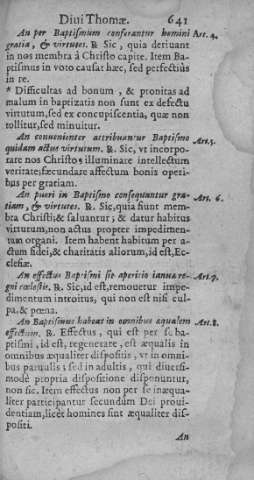 Diui Thomæ. 641
An per Baptismum conferantur homini Art. 4.
gratia, & virtutes. R. Sic, quia deriuant
in nos membra á Christo capite. Item Bap
tismus in voto causat hæc, sed perfectiùs
in re.
* Difficultas ad bonum, & pronitas ad
malum in baptizatis non sunt ex defectu
virtutum, sed ex concupiscentia, quæ non
tollitur, sed minuitur.
An conuenienter attribuantur Baptismo Art. 5.
quidam actus virtutum. R. Sic, vt incorpo-
rare nos Christo; illuminare intellectum
veritate; fæcundare affectum bonis operi
bus per gratiam.
An pueri in Baptismo consequantur gra- Art. 6.
tiam, & virtutes. R. Sic, quia fiunt mem
bra Christi; & saluantur, & datur habitus
virtutum, non actus propter impedimen-
tum organi. Item habent habitum per a-
ctum fidei, & charitatis aliorum, id est, Ec-
clesiæ.
An effectus Baptismi sit apertio ianuæ re- Art. 7.
gni cælestis. R. Sic, id est, remouetur impe-
dimentum introitus, qui non est nisi cul
pa, & pœna.
An Baptismus habeat in omnibus æqualem Art. 8.
effectum. R. Effectus, qui est per se ba-
ptismi, id est, regenerare, est æqualis in
omnibus æqualiter dispositis, vt in omni-
bus paruulis; sed in adultis, qui diuersi-
modè propria dispositione disponuntur,
non sic. Item effectus non per se inæqua-
liter participantur secundum Dei proui-
dentiam, licèt homines sint æqualiter dis-
positi.
An